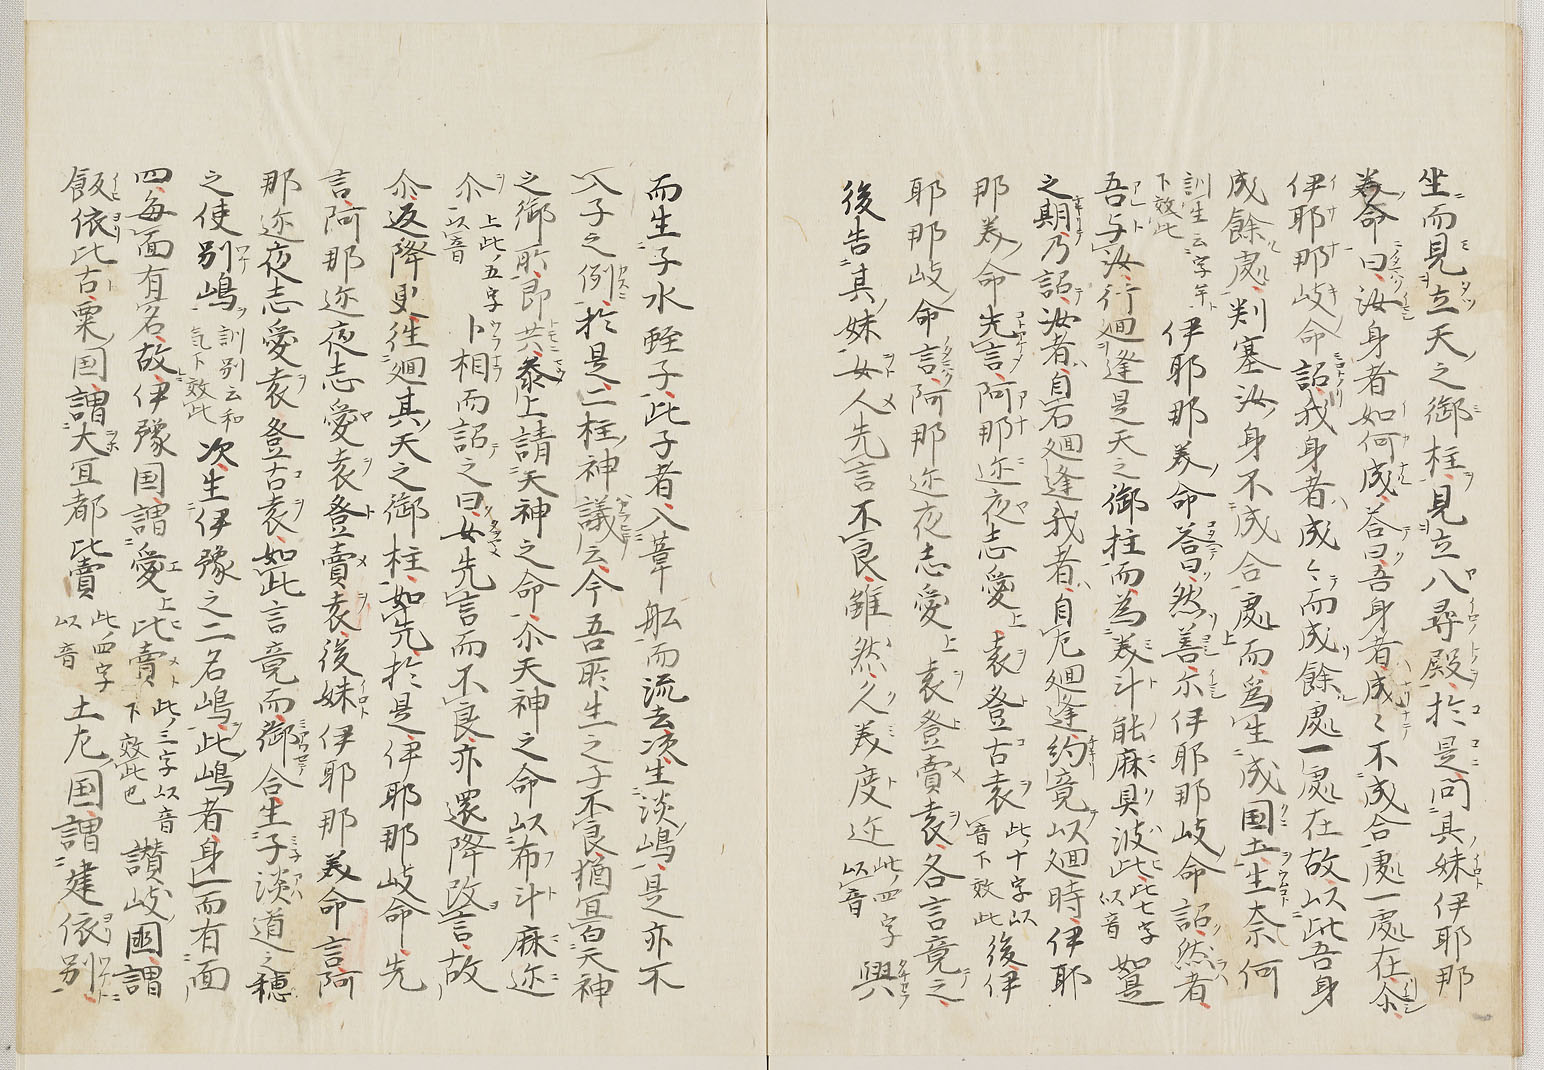 坐而見立天之御柱見立八尋殿於是問其妹伊耶那
美命曰汝身者如何成答曰吾身者成々不成合處一處在尒
伊耶那岐命詔我身者成々而成餘處一處在故以此吾身
成餘處判塞汝身不成合處而為生成国土生奈何
訓生云宇牟下效此 伊耶那美命答曰然善尒伊耶那岐命詔然者
吾与汝行廻逢是天之御柱而為美斗能麻具波比此七字以音 如是
之期乃詔汝者自右廻逢我者自左廻逢約竟以廻時伊耶
那美命先言阿那迩夜志愛上袁登古袁此十字以音下效此 後伊
耶那岐命言阿那迩夜志愛上袁登賣袁各言竟之
後告其妹女人先言不良雖然久美度迩此四字以音 興
而生子水蛭子此子者入葦舩而流去次生淡嶋是亦不
入子之例於是二柱神議云今吾所生之子不良猶宜白天神
之御所即共參上請天神之命尒天神之命以布斗麻迩
尒上此五字以音 卜相而詔之曰女先言而不良亦還降改言故
尒返降更徃廻其天之御柱如先於是伊耶那岐命先
言阿那迩夜志愛袁登賣袁後妹伊耶那美命言阿
那迩夜志愛袁登古袁如此言竟而御合生子淡道之穂
之使別嶋訓別云和氣下效此 次生伊豫之二名嶋此嶋者身一而有面
四每面有名故伊豫国謂愛上比賣此三字以音下效此也 讃岐國謂
飯依比古粟国謂大宜都比賣此四字以音 土左国謂建依別